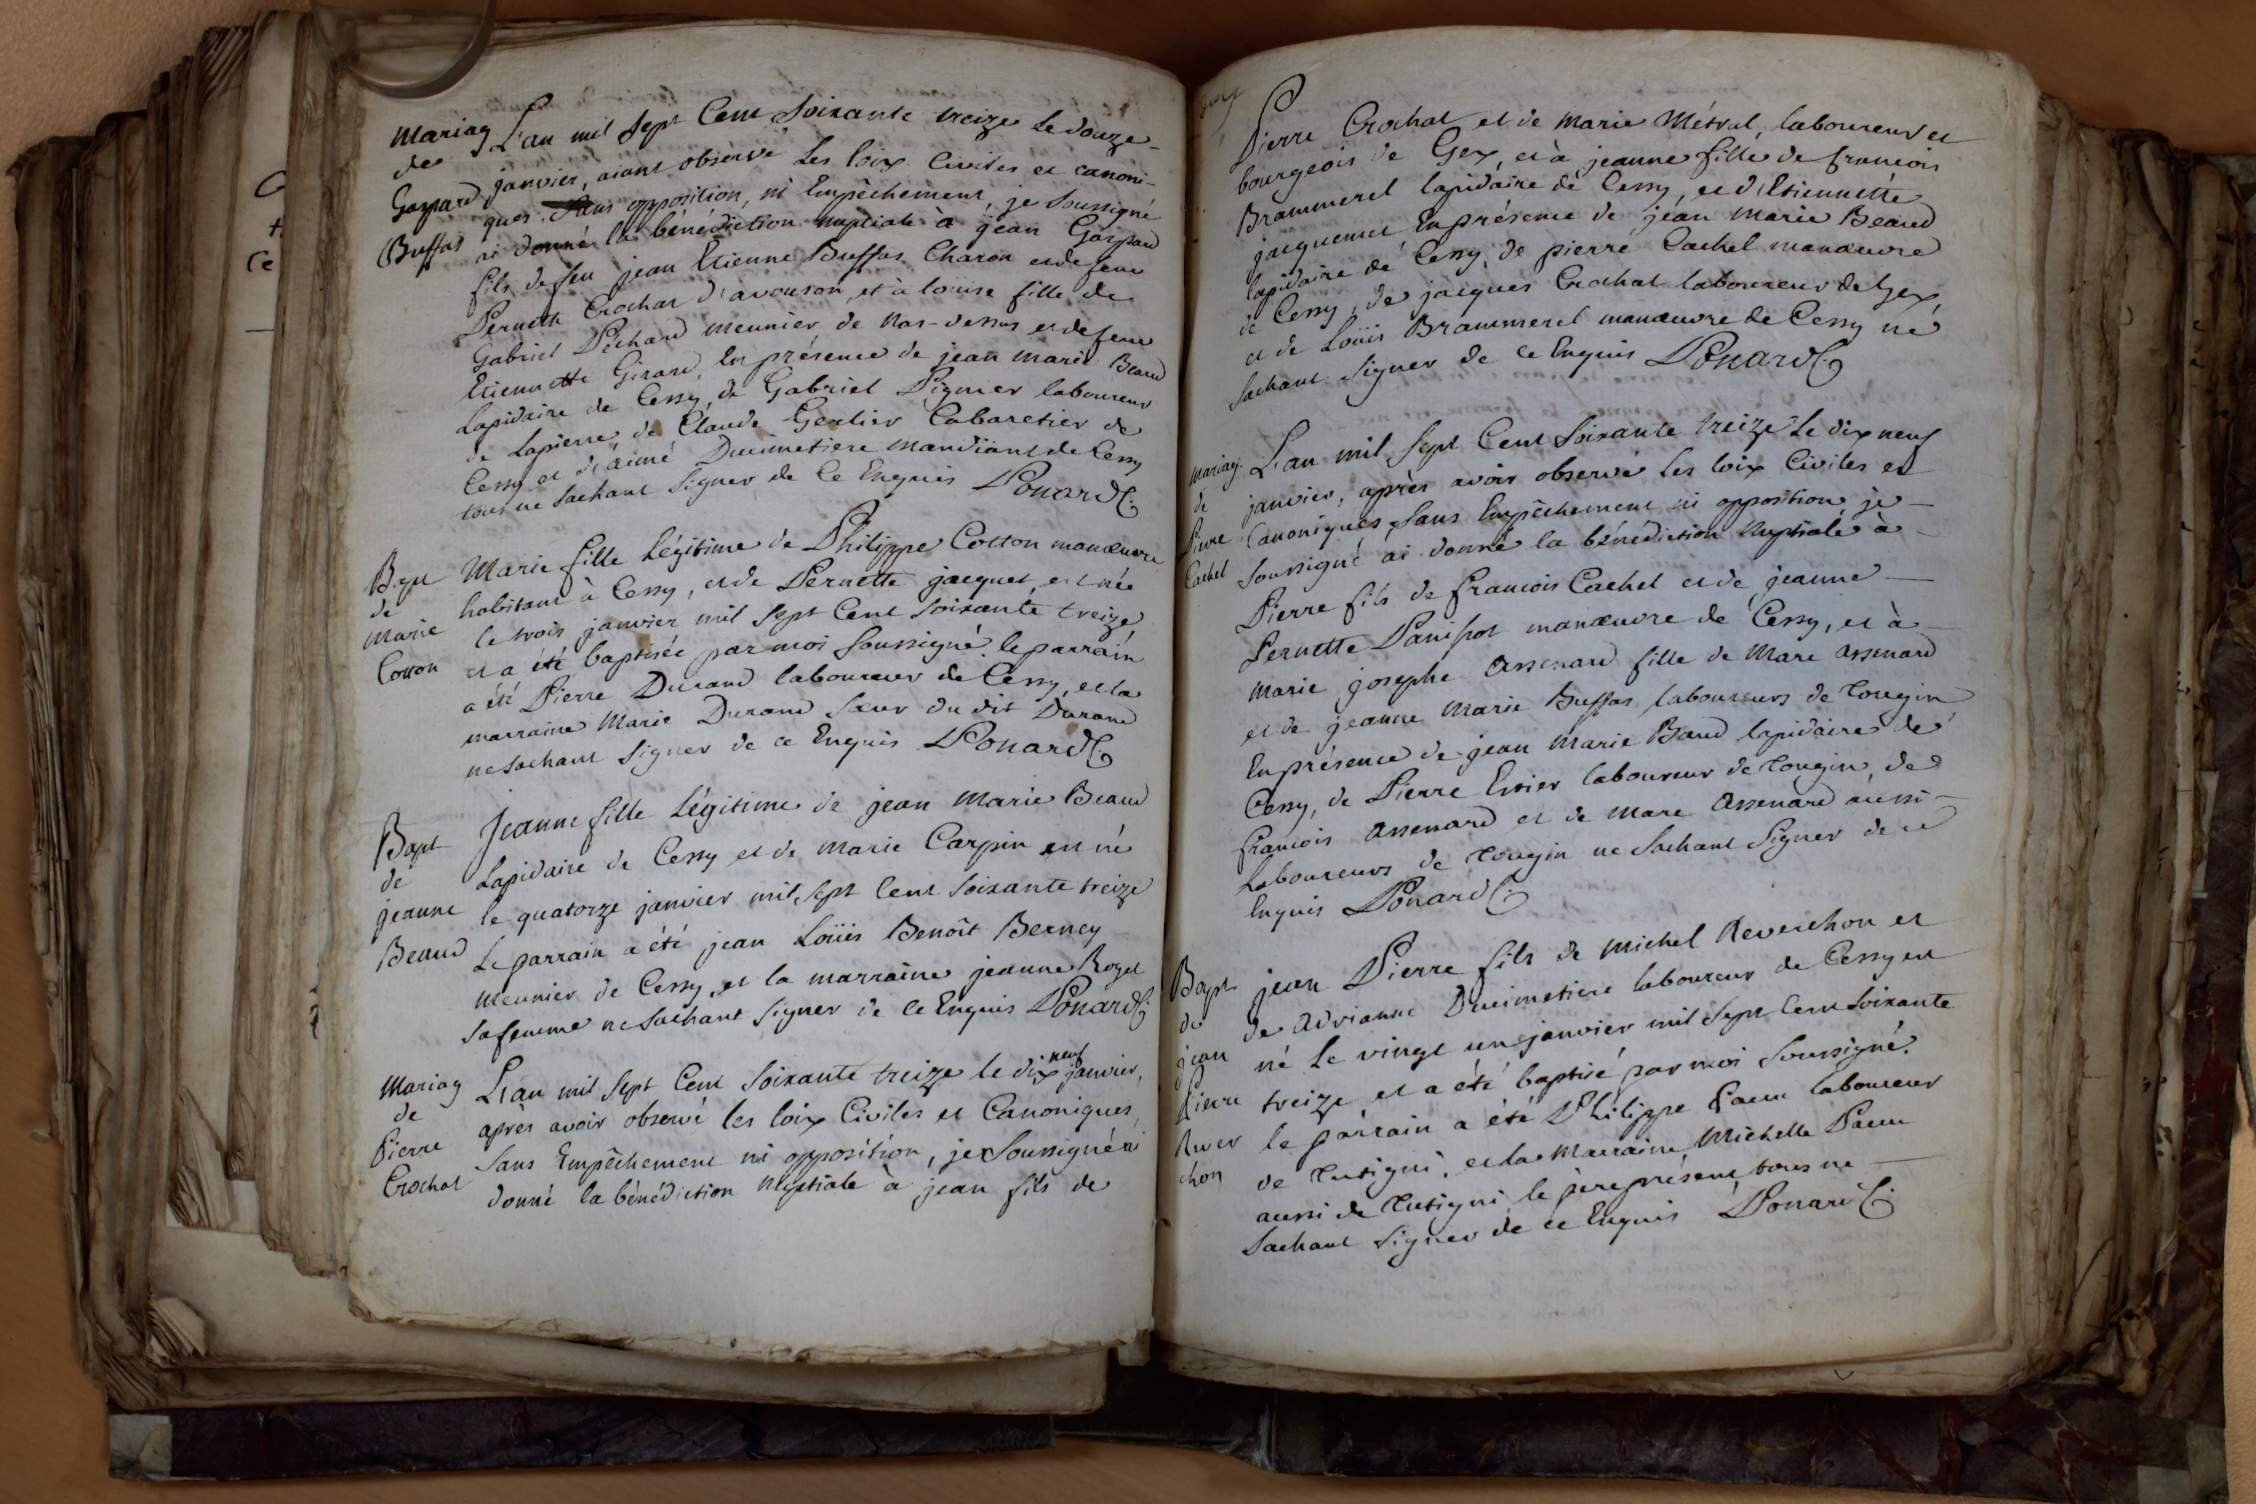 Mariag
de
Gaspard
Buffas
L'an mil Sept Cent Soixante treize Le douze
janvier, aiant observé Les loix Civiles et canoni-
ques opposition, ni Empêchement, je Soussigné
ai donné la bénédiction nuptiale à jean Gaspard
fils de feu jean Etienne Buffas Charon et de feue
Pernette Crochat d'avouson, et à louise fille de
Gabriel Péchard meunier de nas-dessus et de feue
Etiennette Girard, En présence de jean marie Beaud
Lapidaire de Cessy, de Gabriel Pignier laboureur
de Lapierre, de Claude Gerlier Cabaretier de
Cessy et d'aimé Ducimetiere mandiant de Cessy
tous ne Sachant Signer de Ce Enquis Ponard C.
Bapt
de
Marie
Cotton
Marie fille Légitime de Philippe Cotton manœuvre
habitant à Cessy, et de Pernette jacquet, est née
le trois janvier mil Sept Cent Soixante treize
et a été baptisée par moi Soussigné. le parrain
a été Pierre Durand laboureur de Cessy, et la
marraine Marie Durand Sœur du dit Durand
ne Sachant Signer de ce Enquis Ponard C.
Bapt
de
jeanne
Beaud
Jeanne fille Légitime de jean Marie Beaud
Lapidaire de Cessy et de Marie Carpin est né
le quatorze janvier mil Sept Cent Soixante treize
Le parrain a été jean Loüis Benoît Berney
meunier de Cessy, et la marraine jeanne Roget
Sa femme ne Sachant Signer de Ce Enquis Ponard C.
Mariag
de
Pierre
Crochat
L'an mil Sept Cent Soixante treize le dix neuf janvier,
après avoir observé les loix Civiles et Canoniques,
Sans Empêchement ni opposition, je Soussigné ai
donné la bénédiction Nuptiale à jean fils de
Pierre Crochat et de Marie Métral, laboureur et
bourgeois de Gex, et à jeanne fille de francois
Brammerel lapidaire de Cessy, et d'Etiennette
jacquemet En présence de jean Marie Beaud
lapidaire de Cessy, de pierre Cachel manœuvre
de Cessy, de jacques Crochat laboureur de Gex,
et de Loüis Brammerel manœuvre de Cessy ne
Sachant Signer de Ce Enquis Ponard C.
Mariag
de
Pierre
Cachel
L'an mil Sept Cent Soixante treize Le dix neuf
janvier, après avoir observé les loix Civiles et
Canoniques, Sans Empêchement ni opposition je
Soussigné ai donné la bénédiction Nuptiale à
Pierre fils de francois Cachel et de jeanne
Pernette manœuvre de Cessy, et à
Marie josephe Assenard fille de Marc Assenard
et de jeanne Marie Buffas laboureurs de Tougin
En présence de jean Marie Baud lapidaire de
Cessy, de Pierre laboureur de Tougin, de
francois Assenard et de Marc Assenard aussi
Laboureurs de Tougin ne Sachant Signer de ce
Enquis Ponard C.
Bapt
de
jean
Pierre
Rever
chon
jean Pierre fils de Michel Reverchon et
de Adrianne Ducimetiere laboureur de Cessy est
né le vingt un janvier mil Sept Cent Soixante
treize et a été baptisé par moi Soussigné.
le parrain a été Philippe Paeu laboureur
de Tutigni, et la Marraine Michelle Paeu
aussi de Tutigni le père présent, tous ne
Sachant Signer de ce Enquis Ponard C.